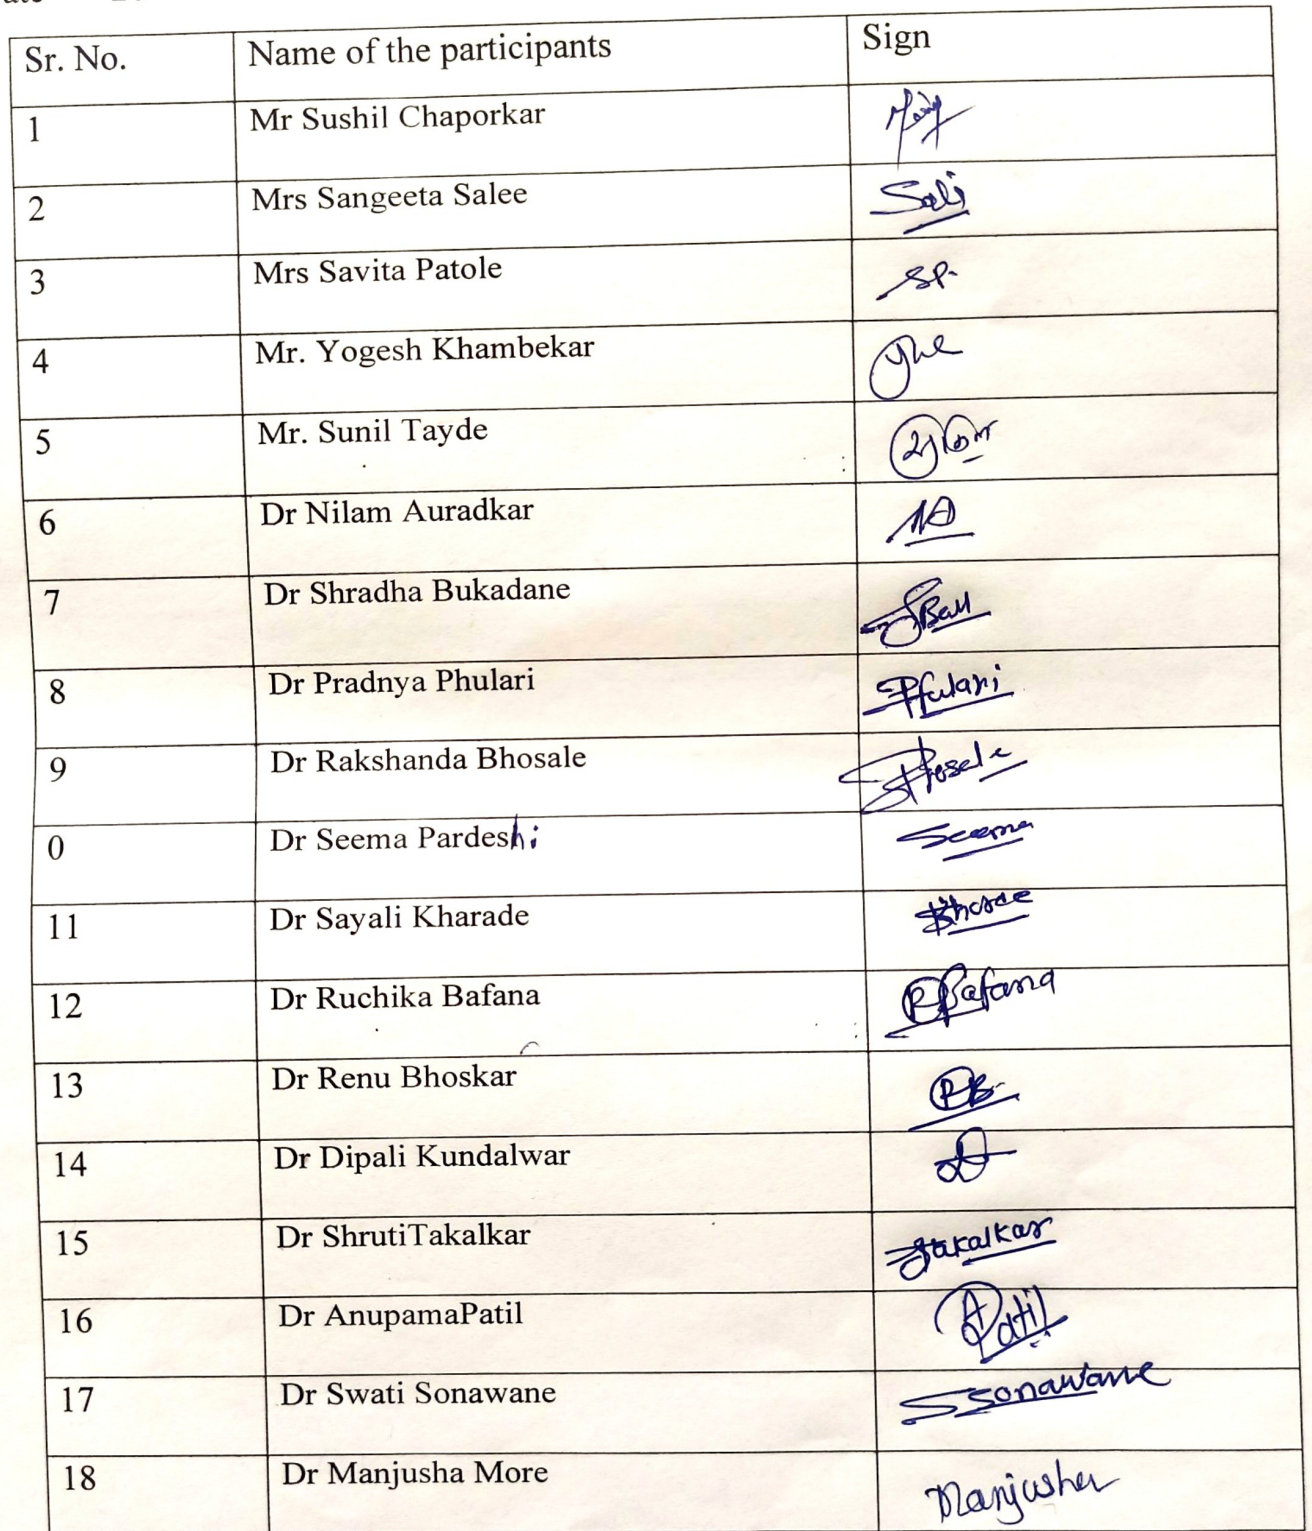 Sr. No. Name of the participants Sign
1 Mr Sushil Chaporkar
2 Mrs Sangeeta Salee Sali
3 Mrs Savita Patole SP.
4 Mr. Yogesh Khambekar
5 Mr. Sunil Tayde
6 Dr Nilam Auradkar NA
7 Dr Shradha Bukadane
8 Dr Pradnya Phulari Pfulari
9 Dr Rakshanda Bhosale
0 Dr Seema Pardeshi Seema
11 Dr Sayali Kharade
12 Dr Ruchika Bafana RBafana
13 Dr Renu Bhoskar RB.
14 Dr Dipali Kundalwar
15 Dr ShrutiTakalkar Stakalkar
16 Dr AnupamaPatil APatil
17 Dr Swati Sonawane Ssonawane
18 Dr Manjusha More Manjusha